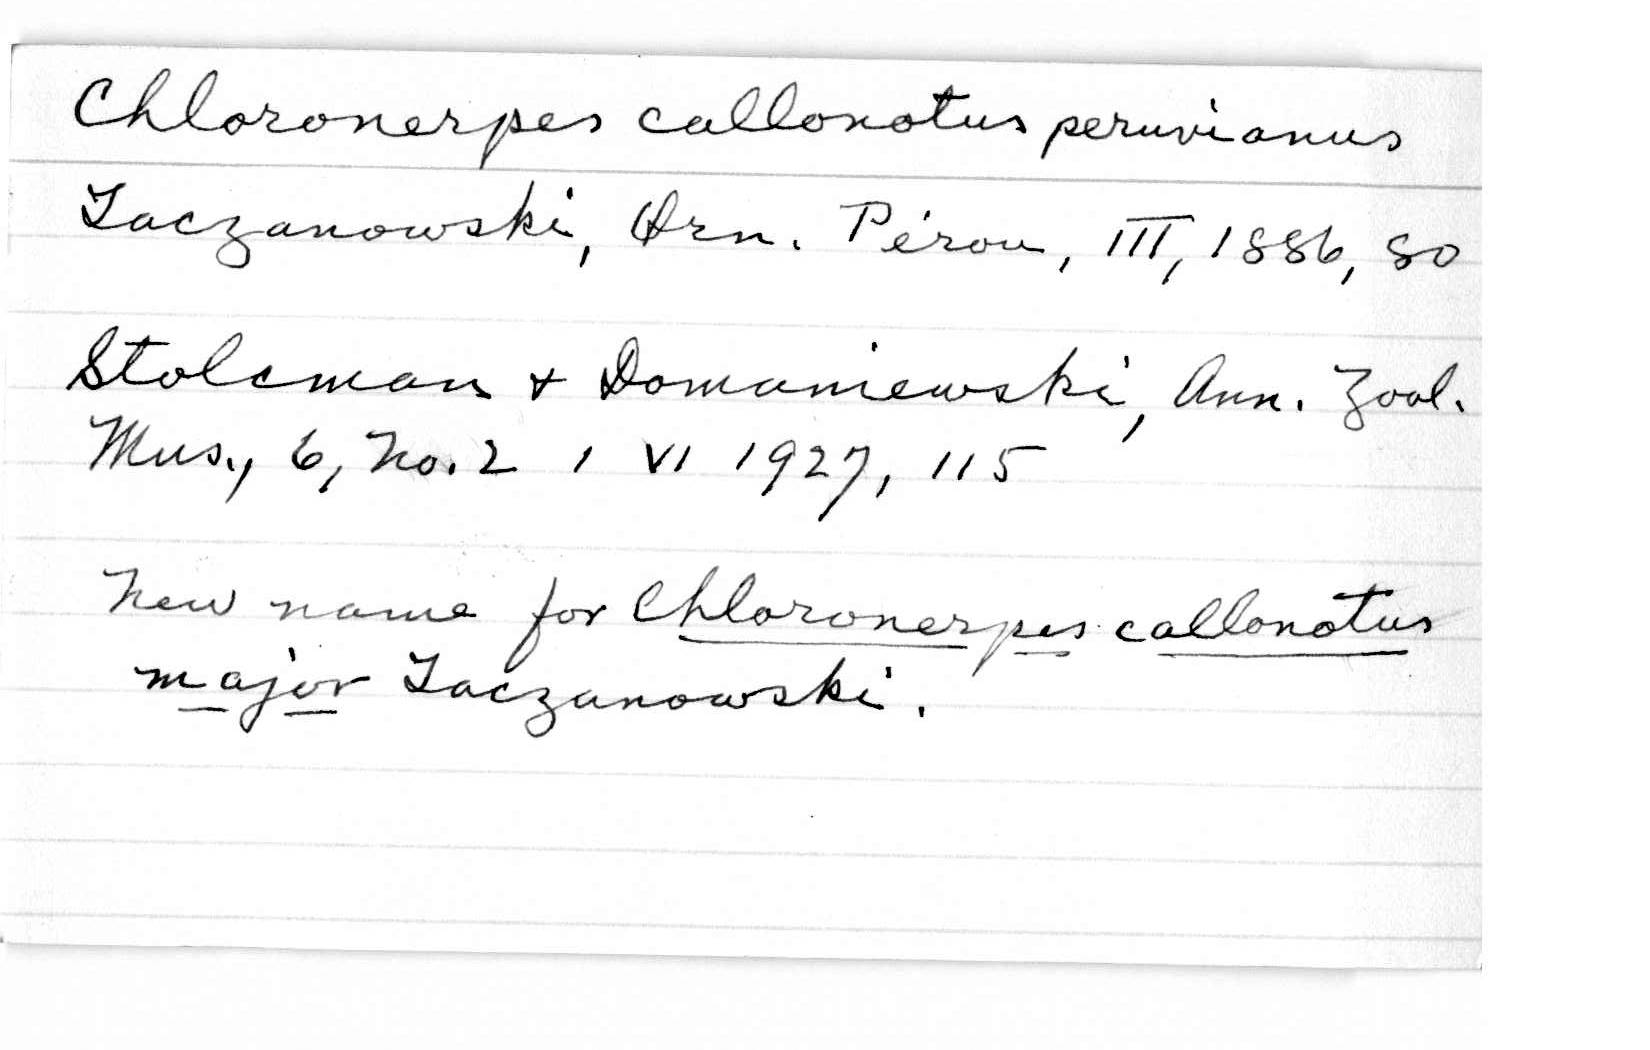 Chloronerpes callonotus peruvianus
Taczanowski, Orn. Pérou, III, 1886, 80
Stolcman & Domaniewski, Ann. Zool.
Mus., 6, No. 2 1 VI 1927, 115
New name for Chloronerpes callonotus
major Taczanowski.